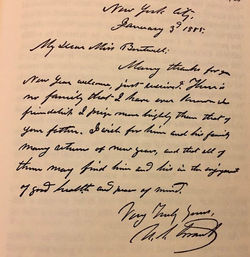 New York City,
January 3d 1885.
My Dear Miss
Many thanks for your
New Year welcome, just received. There is
no family that I have ever known whose
friendship I prize more highly than that of
your father. I wish for him and his family
many returns of new years, and that all of
them may find him and his in the enjoyment
of good health and peace of mind.
Very Truly Yours,
U. S. Grant